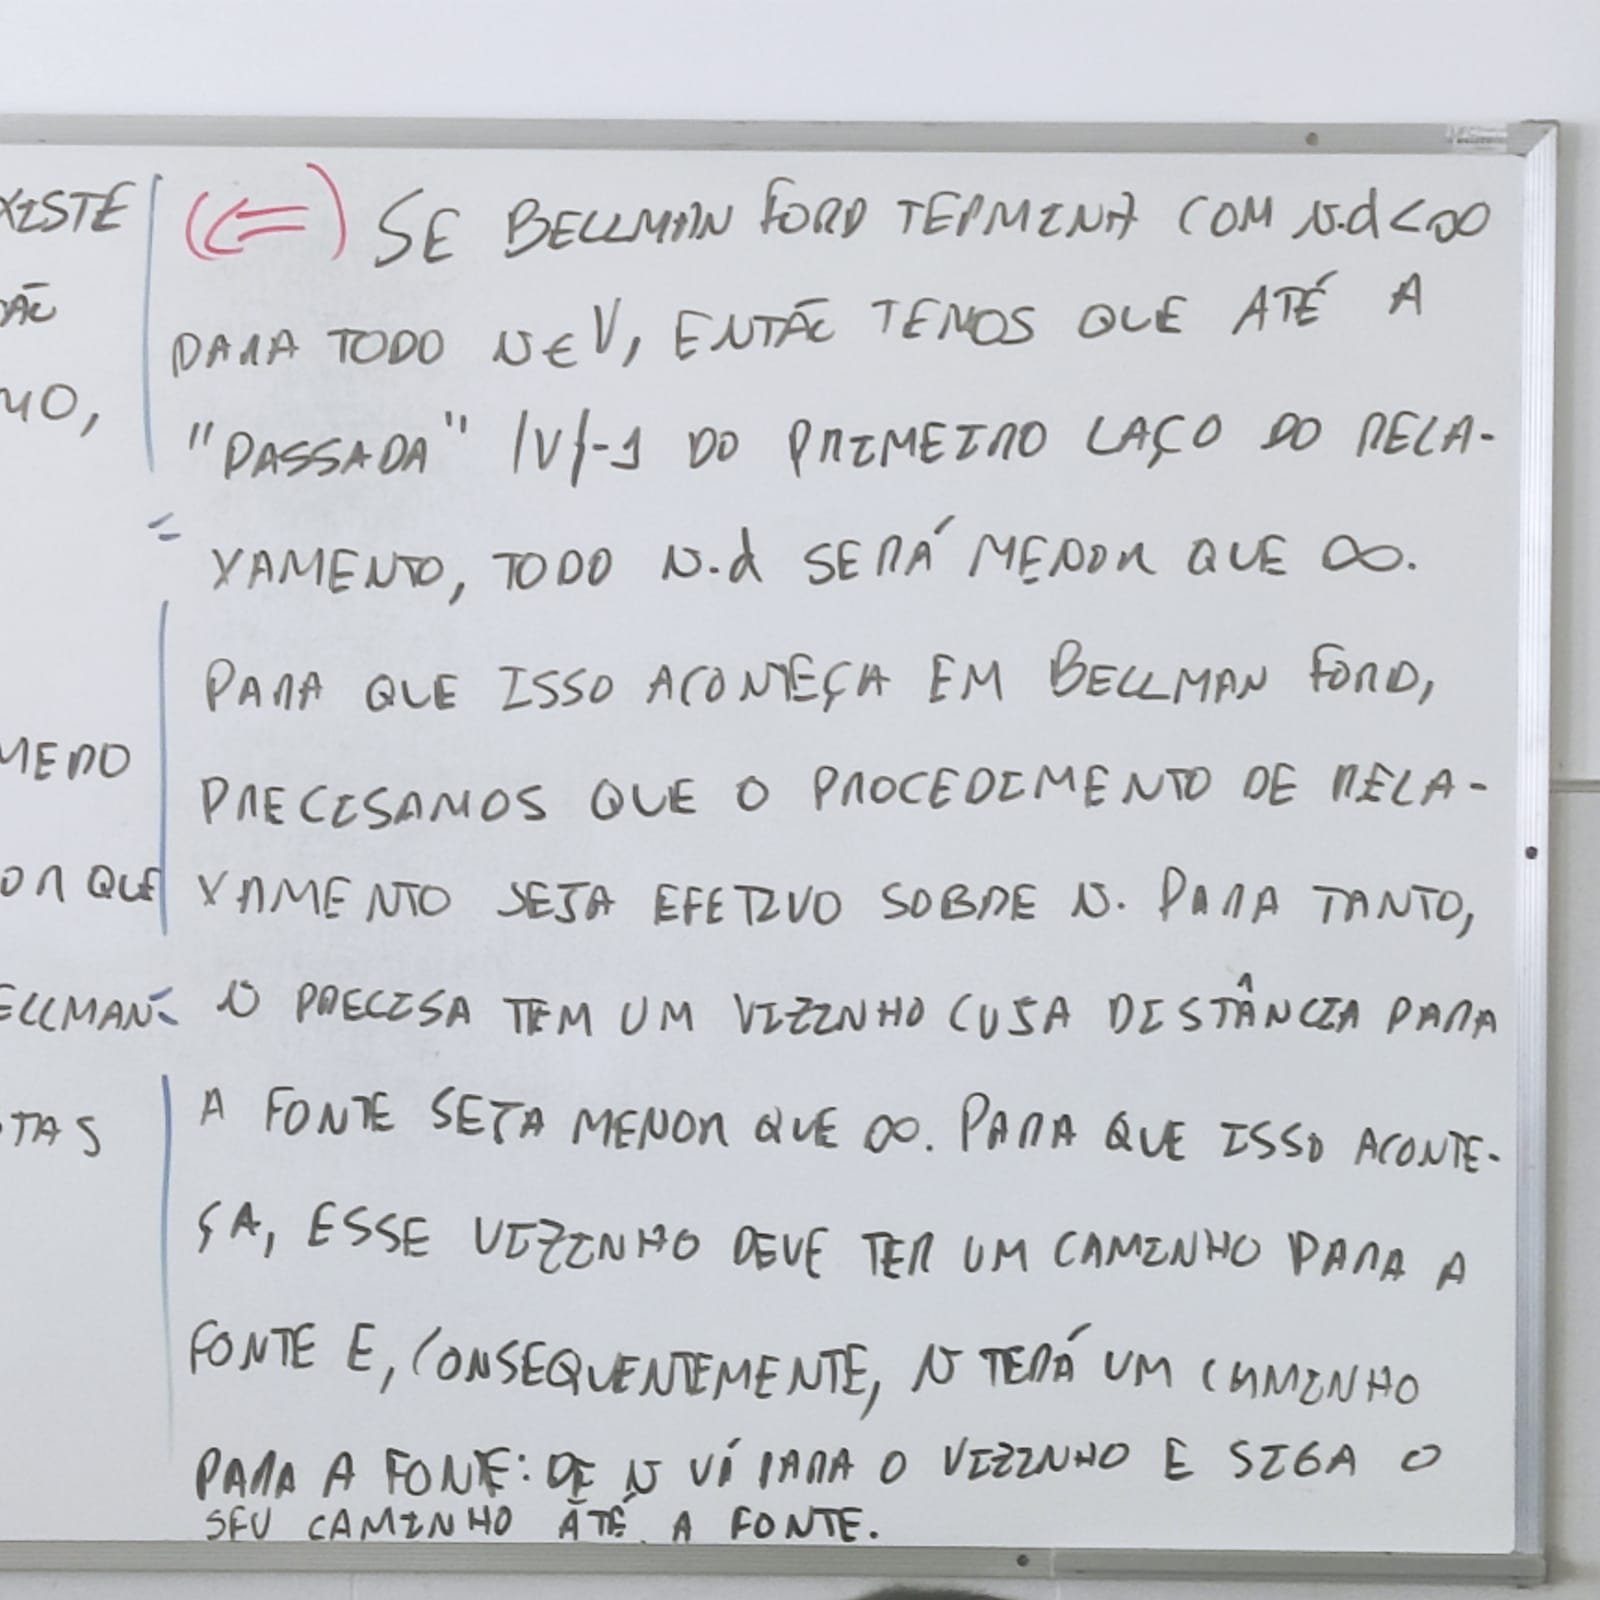 XISTE
ÃO
MO,
MERO
OR QUE
ELLMAN-
TAS
(⇐) SE BELLMAN FORD TERMINA COM v.d<∞
PARA TODO v∈V, ENTÃO TEMOS QUE ATÉ A
"PASSADA" |V|-1 DO PRIMEIRO LAÇO DO RELA-
XAMENTO, TODO v.d SERÁ MENOR QUE ∞.
PARA QUE ISSO ACONTEÇA EM BELLMAN FORD,
PRECISAMOS QUE O PROCEDIMENTO DE RELA-
XAMENTO SEJA EFETIVO SOBRE v. PARA TANTO,
v PRECISA TEM UM VIZINHO CUJA DISTÂNCIA PARA
A FONTE SEJA MENOR QUE ∞. PARA QUE ISSO ACONTE-
ÇA, ESSE VIZINHO DEVE TER UM CAMINHO PARA A
FONTE E, CONSEQUENTEMENTE, v TERÁ UM CAMINHO
PARA A FONTE: DE v VÁ PARA O VIZINHO E SIGA O
SEU CAMINHO ATÉ A FONTE.